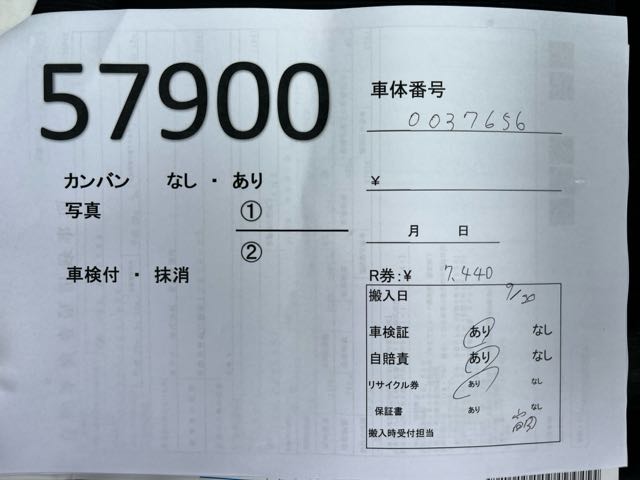 57900
車体番号
0037656
カンバン なし ・ あり
¥
写真 ①
②
月 日
車検付 ・ 抹消
R券:¥ 7,440
搬入日 9/20
車検証 あり なし
自賠責 あり なし
リサイクル券 あり なし
保証書 あり なし
搬入時受付担当